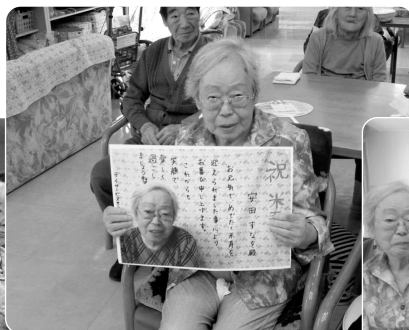 祝 米
安田 すなを殿
お元気で めでたく米寿を
迎えられました事を心より
お喜び申し上げます。
これからも
笑顔で
楽しく
過ごし
ましょうね